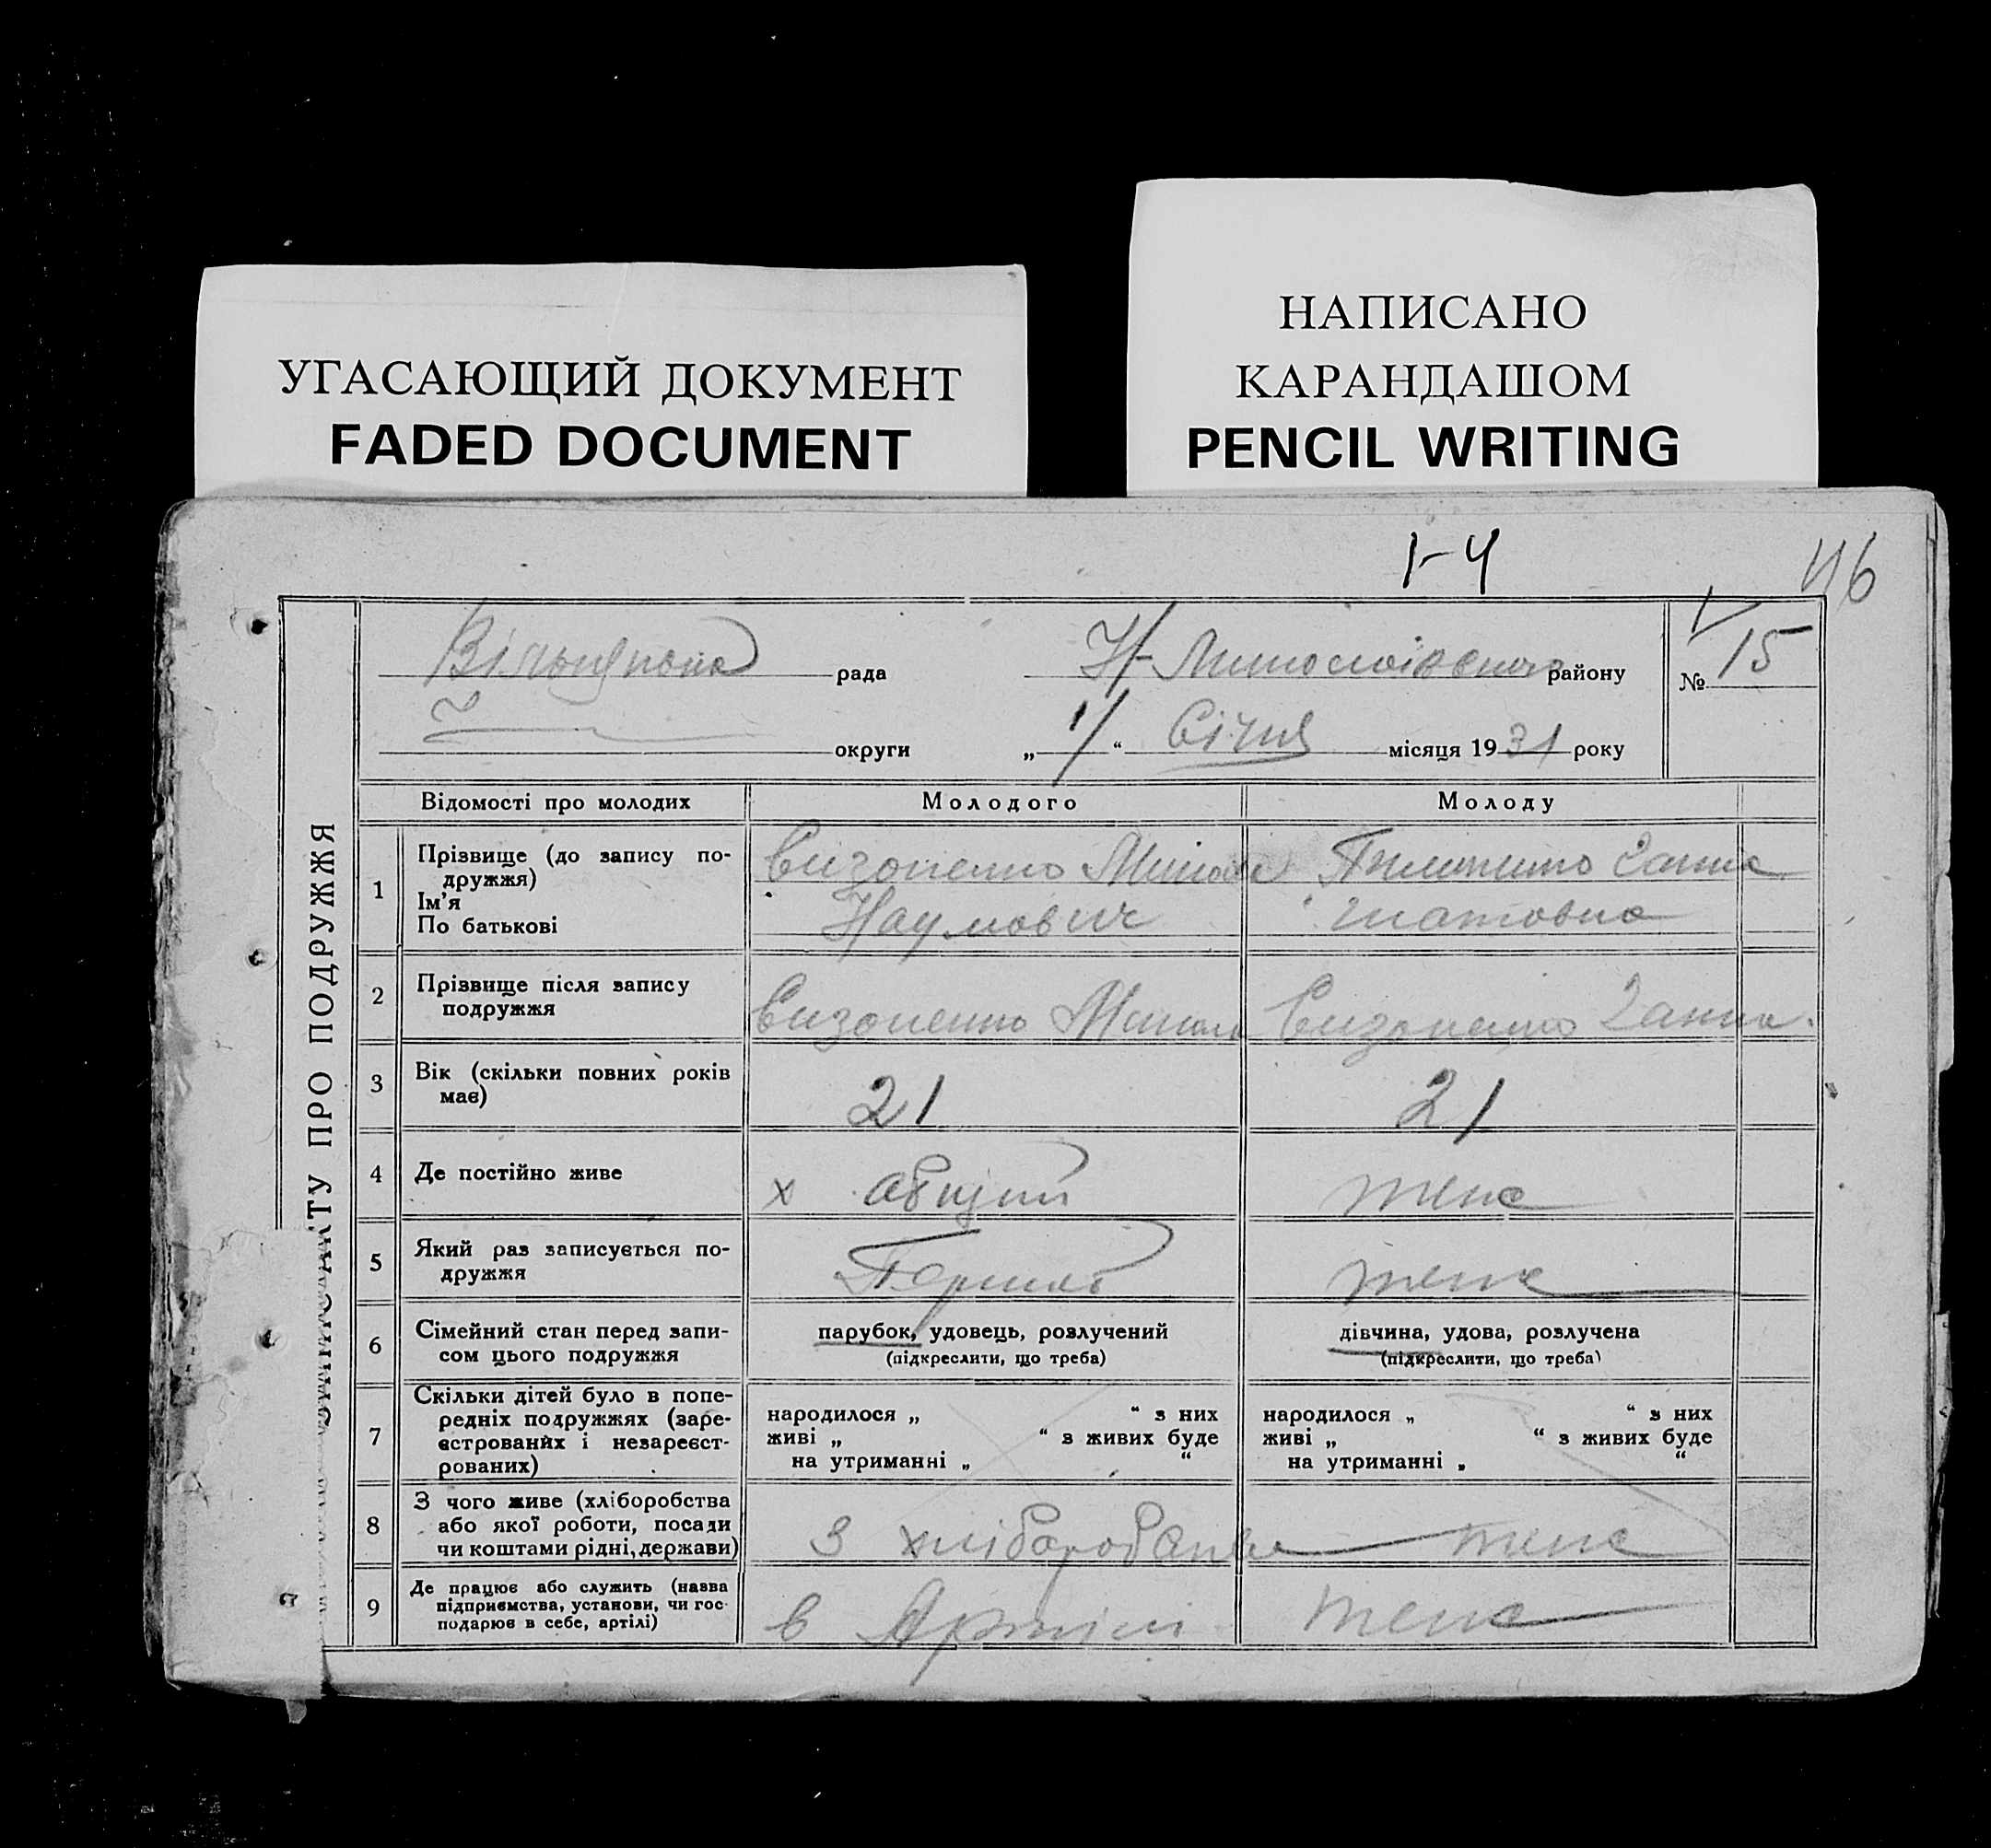 УГАСАЮЩИЙ ДОКУМЕНТ
FADED DOCUMENT
НАПИСАНО
КАРАНДАШОМ
PENCIL WRITING
1-4
116
рада
району
№ 15
округи
„ 1 “ Січня місяця 1931 року
АКТУ ПРО ПОДРУЖЖЯ
Відомості про молодих
Молодого
Молоду
1
Прізвище (до запису по-
дружжя)
Ім'я
По батькові
Наумович
Ганна
2
Прізвище після запису
подружжя
Ганна
3
Вік (скільки повних років
має)
21
21
4
Де постійно живе
х
теж
5
Який раз записується по-
дружжя
Перший
теж
6
Сімейний стан перед запи-
сом цього подружжя
парубок, удовець, розлучений
(підкреслити, що треба)
дівчина, удова, розлучена
(підкреслити, що треба)
7
Скільки дітей було в попе-
редніх подружжях (заре-
єстрованих і незареєст-
рованих)
народилося „ “ з них
живі „ “ з живих буде
на утриманні „ “
народилося „ “ з них
живі „ “ з живих буде
на утриманні „ “
8
З чого живе (хліборобства
або якої роботи, посади
чи коштами рідні, держави)
З хліборобства
теж
9
Де працює або служить (назва
підприємства, установи, чи гос-
подарює в себе, артілі)
в Артілі
теж